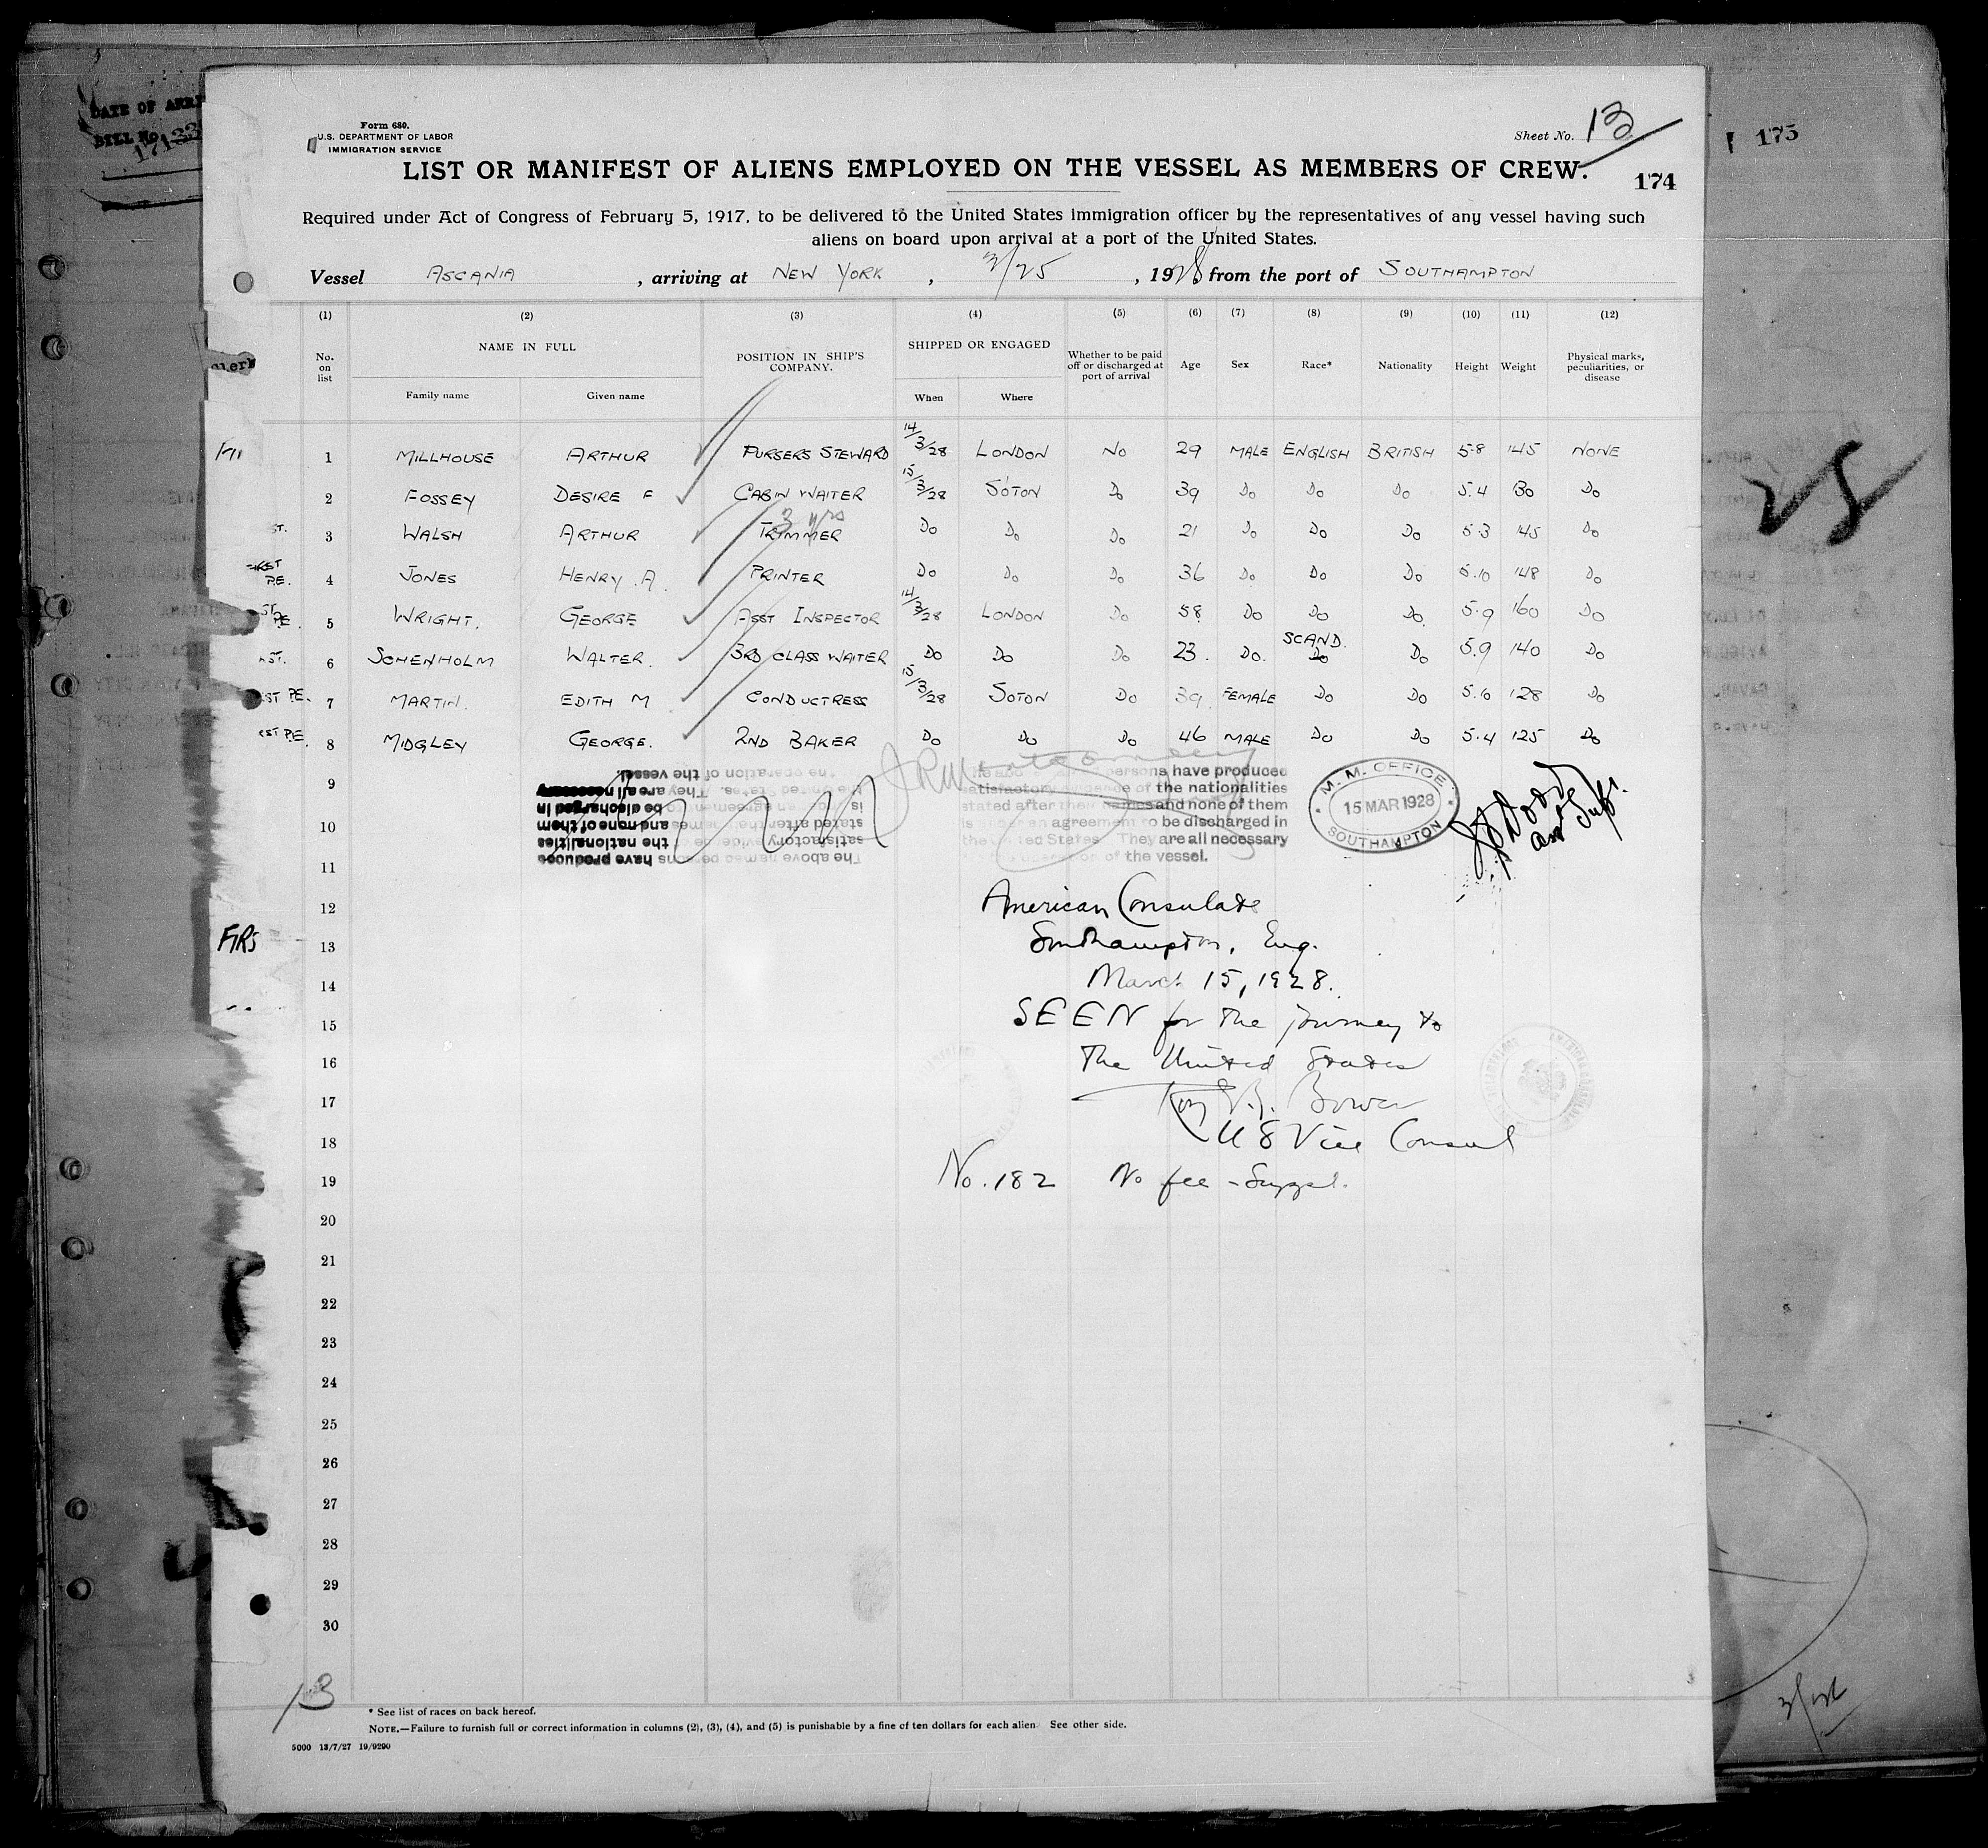 DATE OF ARRI
BILL No.
Form 680.
U.S. DEPARTMENT OF LABOR
IMMIGRATION SERVICE
Sheet No. 13
175
LIST OR MANIFEST OF ALIENS EMPLOYED ON THE VESSEL AS MEMBERS OF CREW.
174
Required under Act of Congress of February 5, 1917, to be delivered to the United States immigration officer by the representatives of any vessel having such
aliens on board upon arrival at a port of the United States.
Vessel ASCANIA , arriving at NEW YORK , 3/25 , 1928 from the port of SOUTHAMPTON
(1) (2) (3) (4) (5) (6) (7) (8) (9) (10) (11) (12)
No. on list NAME IN FULL POSITION IN SHIP'S COMPANY. SHIPPED OR ENGAGED Whether to be paid off or discharged at port of arrival Age Sex Race* Nationality Height Weight Physical marks, peculiarities, or disease
Family name Given name When Where
1 MILLHOUSE ARTHUR PURSERS STEWARD 14/3/28 LONDON NO 29 MALE ENGLISH BRITISH 5·8 145 NONE
2 FOSSEY DESIRE F CABIN WAITER 15/3/28 S'OTON Do 39 Do Do Do 5.4 130 Do
3 yrs
3 WALSH ARTHUR TRIMMER Do Do Do 21 Do Do Do 5·3 145 Do
4 JONES HENRY A. PRINTER Do Do Do 36 Do Do Do 5.10 148 Do
5 WRIGHT. GEORGE ASST INSPECTOR 14/3/28 LONDON Do 58 Do Do Do 5·9 160 Do
SCAND.
6 SCHENHOLM WALTER. 3RD CLASS WAITER Do Do Do 23. Do. Do Do 5.9 140 Do
7 MARTIN. EDITH M CONDUCTRESS 15/3/28 SOTON Do 39 FEMALE Do Do 5.10 128 Do
8 MIDGLEY GEORGE. 2ND BAKER Do Do Do 46 MALE Do Do 5·4 125 Do
25
9
10
11
The above named persons have produced
satisfactory evidence of the nationalities
stated after their names and none of them
is under an agreement to be discharged in
the United States. They are all necessary
the operation of the vessel.
The above named persons have produced
satisfactory evidence of the nationalities
stated after their names and none of them
is under an agreement to be discharged in
the United States They are all necessary
operation of the vessel.
M. M. OFFICE
15 MAR 1928
SOUTHAMPTON
12 American Consulate
FIRS
13 Southampton, Eng.
14 March 15, 1928.
15 SEEN for the journey to
16 the United States
17
18 U S Vice Consul
19 No. 182 No fee - Suppl.
20
21
22
23
24
25
26
27
28
29
30
13
* See list of races on back hereof.
NOTE.—Failure to furnish full or correct information in columns (2), (3), (4), and (5) is punishable by a fine of ten dollars for each alien See other side.
5000 13/7/27 19/9290